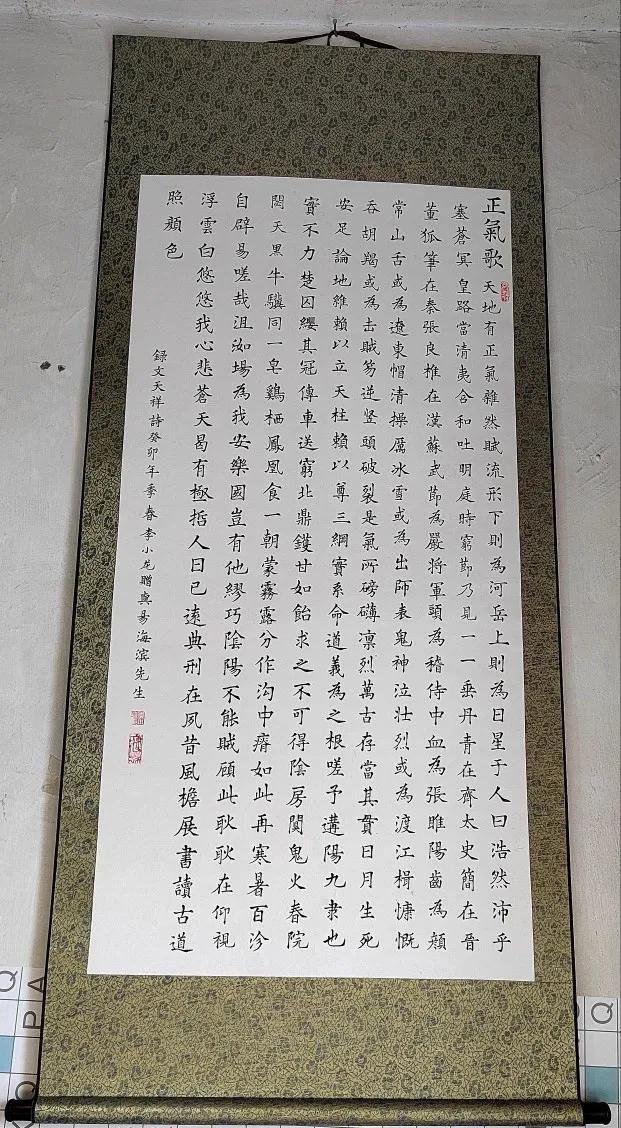 正氣歌 天地有正氣雜然賦流形下則為河岳上則為日星于人曰浩然沛乎
塞蒼冥皇路當清夷含和吐明庭時窮節乃見一一垂丹青在齊太史簡在晉
董狐筆在秦張良椎在漢蘇武節為嚴將軍頭為嵇侍中血為張睢陽齒為顏
常山舌或為遼東帽清操厲冰雪或為出師表鬼神泣壯烈或為渡江楫慷慨
吞胡羯或為击賊笏逆竖頭破裂是氣所磅礴凛烈萬古存當其貫日月生死
安足論地維賴以立天柱賴以尊三綱實系命道義為之根嗟予遘陽九隶也
實不力楚囚纓其冠傳車送窮北鼎鑊甘如飴求之不可得陰房闃鬼火春院
閟天黑牛驥同一皂鷄栖鳳凰食一朝蒙霧露分作沟中瘠如此再寒暑百沴
自辟易嗟哉沮洳場為我安樂國豈有他繆巧陰陽不能賊顧此耿耿在仰視
浮雲白悠悠我心悲蒼天曷有極哲人日已遠典刑在夙昔風檐展書讀古道
照顏色
録文天祥詩癸卯年季春李小龙贈與易海滨先生